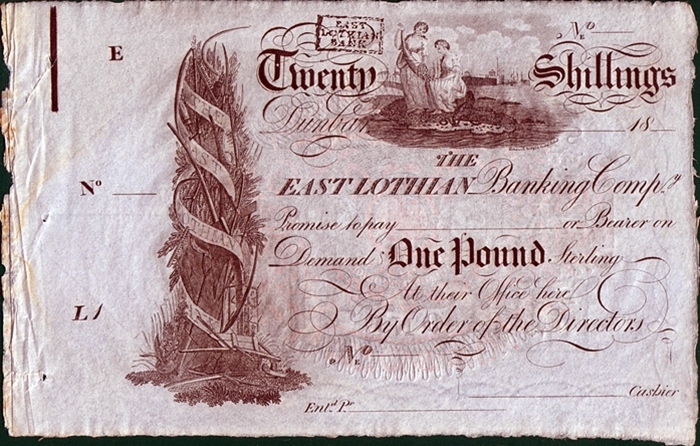 E
EAST
LOTHIAN
BANK
No
Twenty Shillings
Dunbar 18
THE
EAST LOTHIAN Banking Compy
No
Promise to pay or Bearer on
Demand One Pound Sterling
L 1
At their Office here
By Order of the Directors
No
Cashier
Entd. Pr.